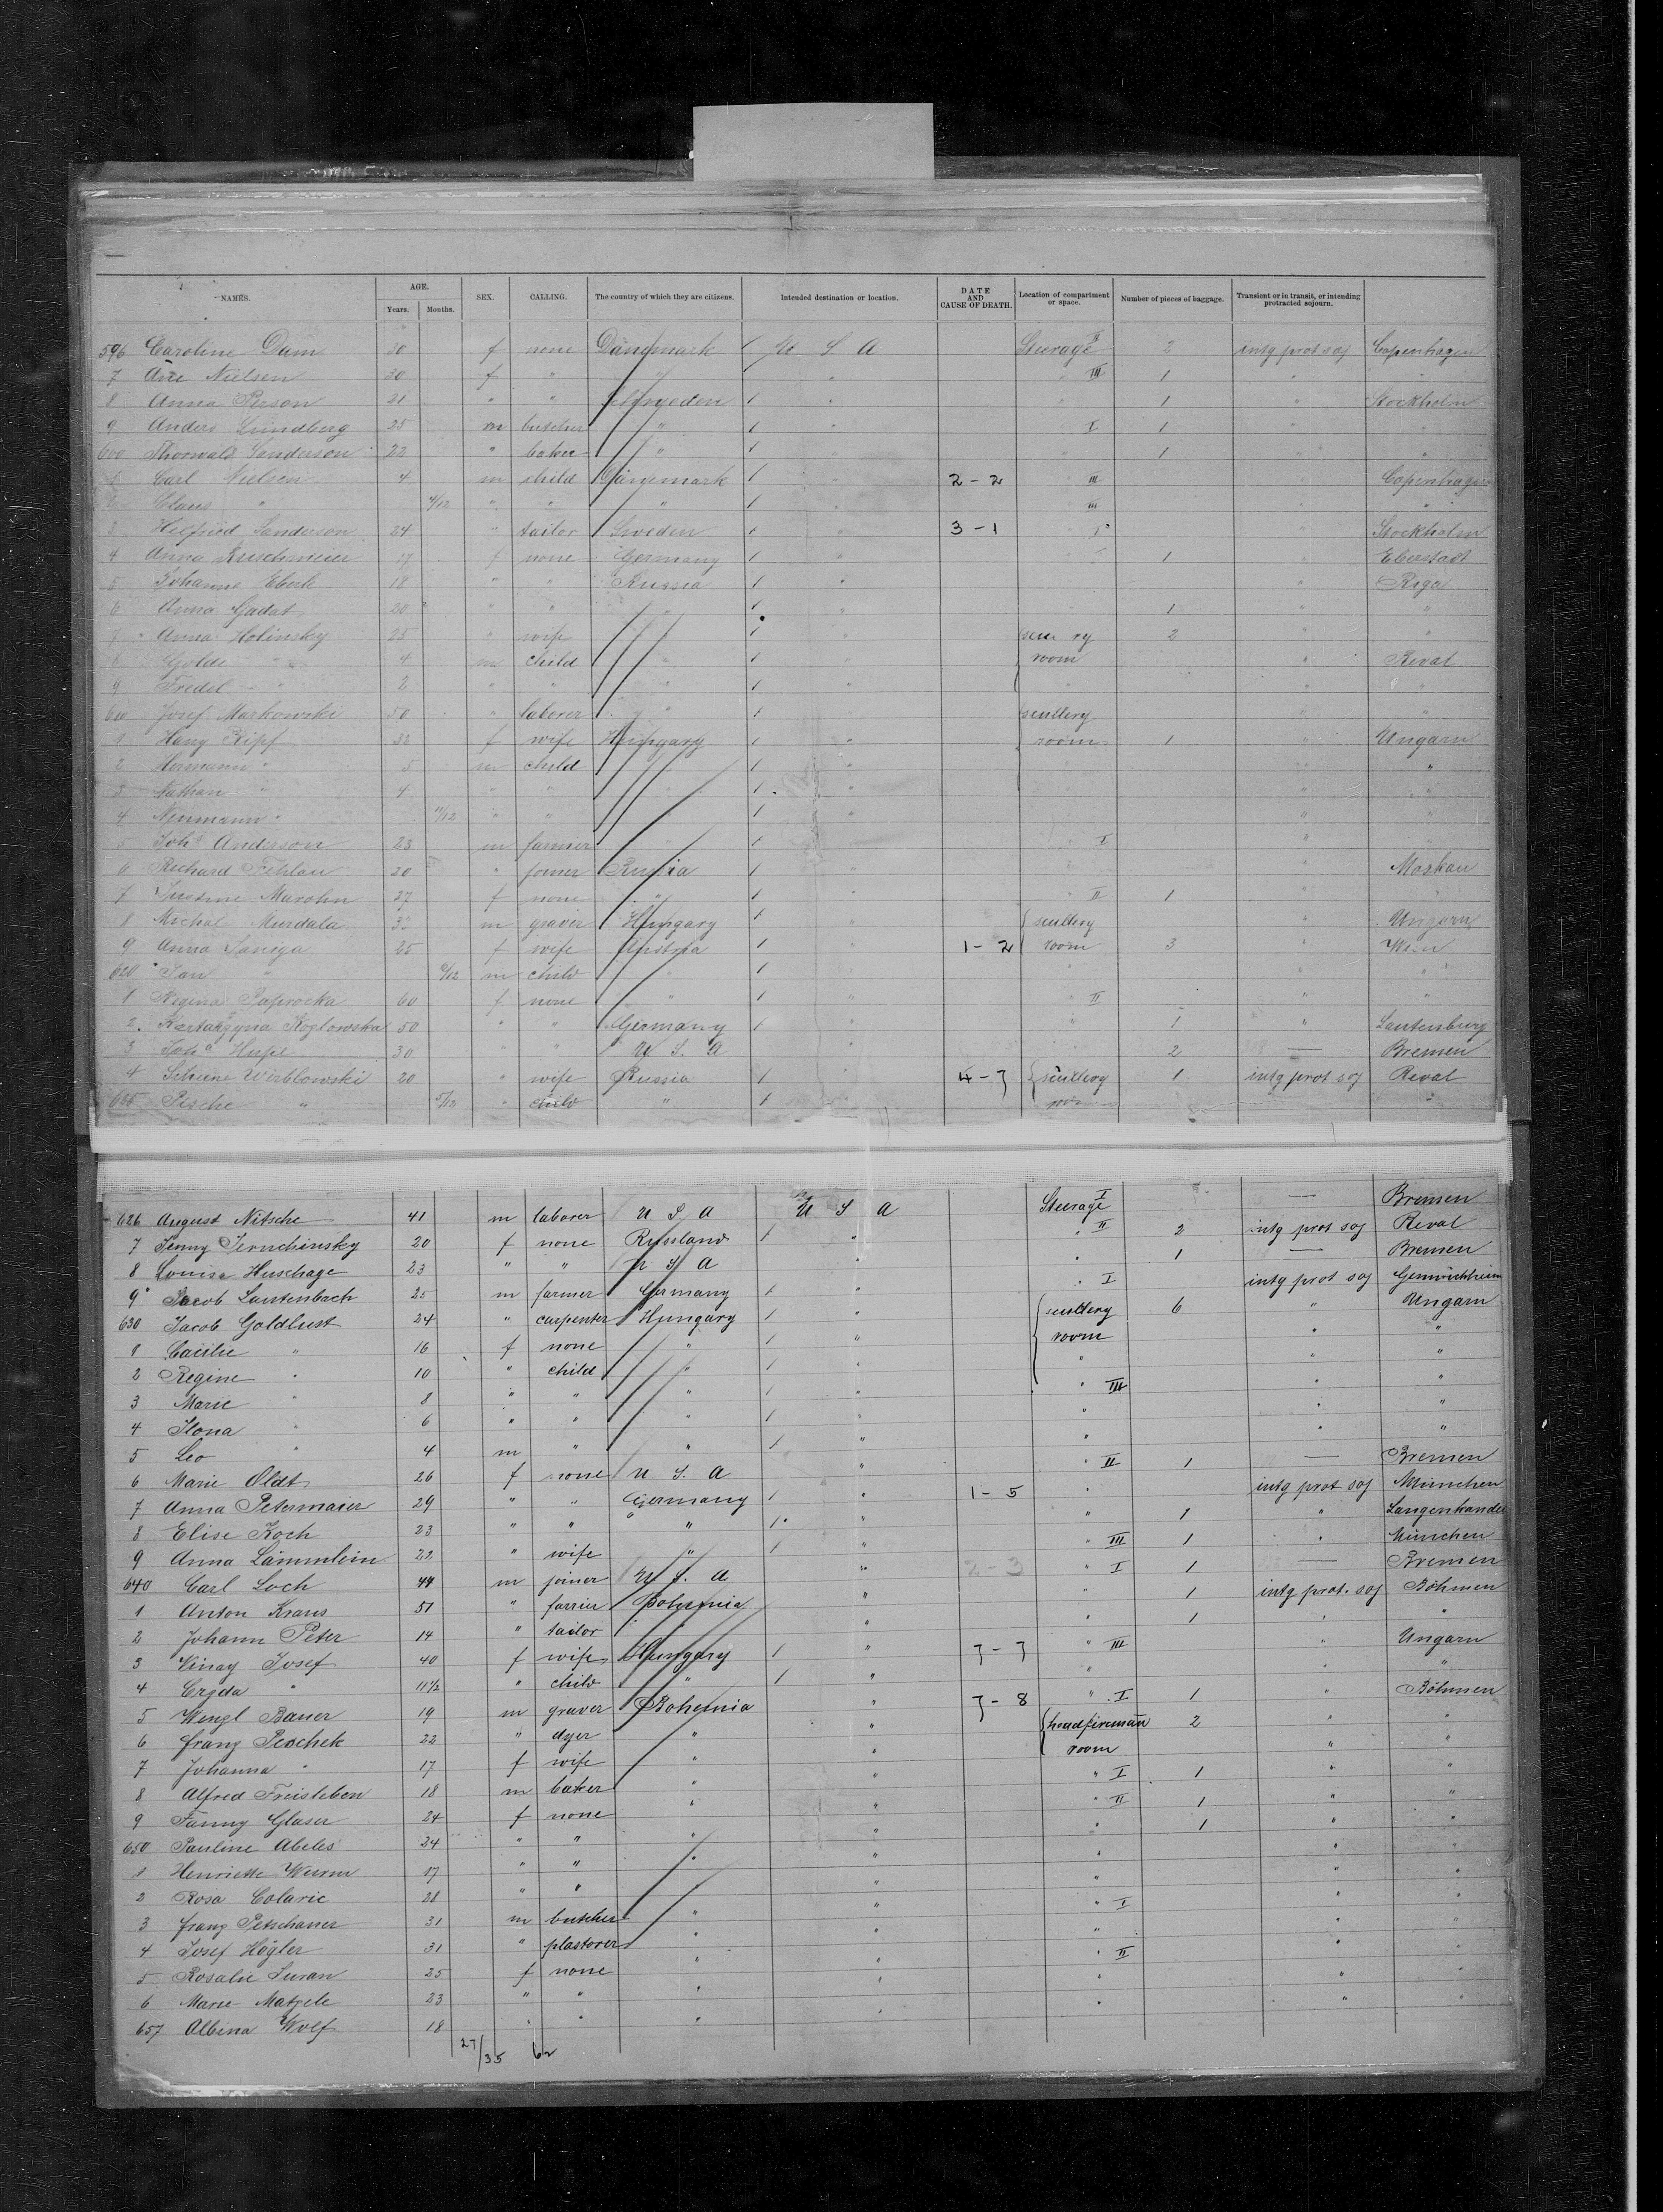 NAMES. AGE. Years. Months. SEX. CALLING. The country of which they are citizens. Intended destination or location. DATE AND CAUSE OF DEATH. Location of compartment or space. Number of pieces of baggage. Transient or in transit, or intending protracted sojourn.
596 Caroline Dam 30 f none Dänemark 1 U S A Steerage II 2 intg prot soj Copenhagen
7 Nielsen 30 f " " 1 " " III 1 " "
8 Anna Person 21 " " Schweden 1 " " 1 " Stockholm
9 Anders Lundberg 25 m butcher " 1 " I 1 "
600 Thorwald Sanderson 22 " baker " 1 " " 1 " "
1 Carl Nielsen 4 m child Dänemark 1 " 2-2 " III Copenhagen
2 Claus " 11/12 " " " 1 " " III " "
3 Helfried Sanderson 24 " tailor Sweden 1 " 3-1 " I " Stockholm
4 Anna 17 f none Germany 1 " 1 " Eberstadt
5 Johanne Eberle 18 " " Russia 1 " " Riga
6 Anna Gadat 20 " " " 1 " 1 " "
7 Anna Holinsky 25 " wife " 1 " 2 " "
8 Golde " 4 m child " 1 room " Reval
9 Fredel " 2 " " " 1 " " " "
610 Josef Markowski 50 " laborer " 1 scullery " "
1 Hany Ripf 32 f wife Hungary 1 " room 1 " Ungarn
2 Hermann " 5 m child 1 " "
3 Nathan " 4 " " 1 " " "
4 Neumann " 11/12 " " 1 " " "
5 Joh. Anderson 23 m farmer 1 I " "
6 Richard Fehlau 20 " joiner Russia 1 " " Moskau
7 Marohn 27 f none " 1 " II 1 "
8 Michal Murdala 3 m graver Hungary 1 " scullery " Ungarn
9 Anna Saniga 25 f wife Austria 1 " 1-2 room 3 " Wien
620 Jan " m child " 1 " " "
1 Regina Paprocka 60 f none " 1 " " II " "
2 Koglowska 50 " " Germany 1 " 1 " Lautenburg
3 Joh. Hupe 30 " " U S. A " 2 — Bremen
4 Wirblowski 20 " wife Russia 1 " 4-7 scullery 1 intg prot soj Reval
625 Pesche " 5/12 " child " 1 room "
626 August Nitsche 41 m laborer U S A U S A Steerage I — Bremen
7 Jenny Jeruchinsky 20 f none Russland 1 " " II 2 intg prot soj Reval
8 Louise Huschage 23 " " U S A " " 1 — Bremen
9 Jacob Lautenbach 25 m farmer Germany 1 " " I intg prot soj
630 Jacob Goldlust 24 " carpenter Hungary 1 " scullery 6 " Ungarn
1 Cäcilie " 16 f none " 1 " room " "
2 Regine " 10 " child " 1 " " " "
3 Marie " 8 " " " 1 " " III " "
4 Ilona " 6 " " " 1 " " " "
5 Leo " 4 m " " 1 " " " "
6 Marie Oldt 26 f none U. S. A " " II 1 — Bremen
7 Anna Petermaier 29 " " Germany 1 " 1-5 " intg prot soj München
8 Elise Koch 23 " " " 1 " " 1 " Langenkandel
9 Anna Lämmlein 22 " wife " 1 " " III 1 " München
640 Carl Loch 44 m joiner U S. A " 2-3 " I 1 — Bremen
1 Anton Kraus 51 " farrier Bohemia " " 1 intg prot. soj Böhmen
2 Johann Peter 14 " tailor " " " 1 " "
3 Josef 40 f wife Hungary 1 " 7-7 " III " Ungarn
4 " 11 1/2 " child " 1 " " " "
5 Wenzl Bauer 19 m graver Bohemia " 7-8 " I 1 " Böhmen
6 Franz Peschek 22 " dyer " " headfireman 2 " "
7 Johanna " 17 f wife " " room " "
8 Alfred Freisleben 18 m baker " " " I 1 " "
9 Fanny Glaser 24 f none " " " II 1 " "
650 Pauline Abeles 24 " " " " " 1 " "
1 Henriette Wurm 17 " " " " " " "
2 Rosa Colaric 28 " " " " " " "
3 Franz Petschauer 31 m butcher " " " I " "
4 Josef Högler 31 " plasterer " " " " "
5 Rosalie Suran 25 f none " " " II " "
6 Marie Matzele 23 " " " " " " "
657 Albina Wolf 18 " " " " " " "
27/35 62